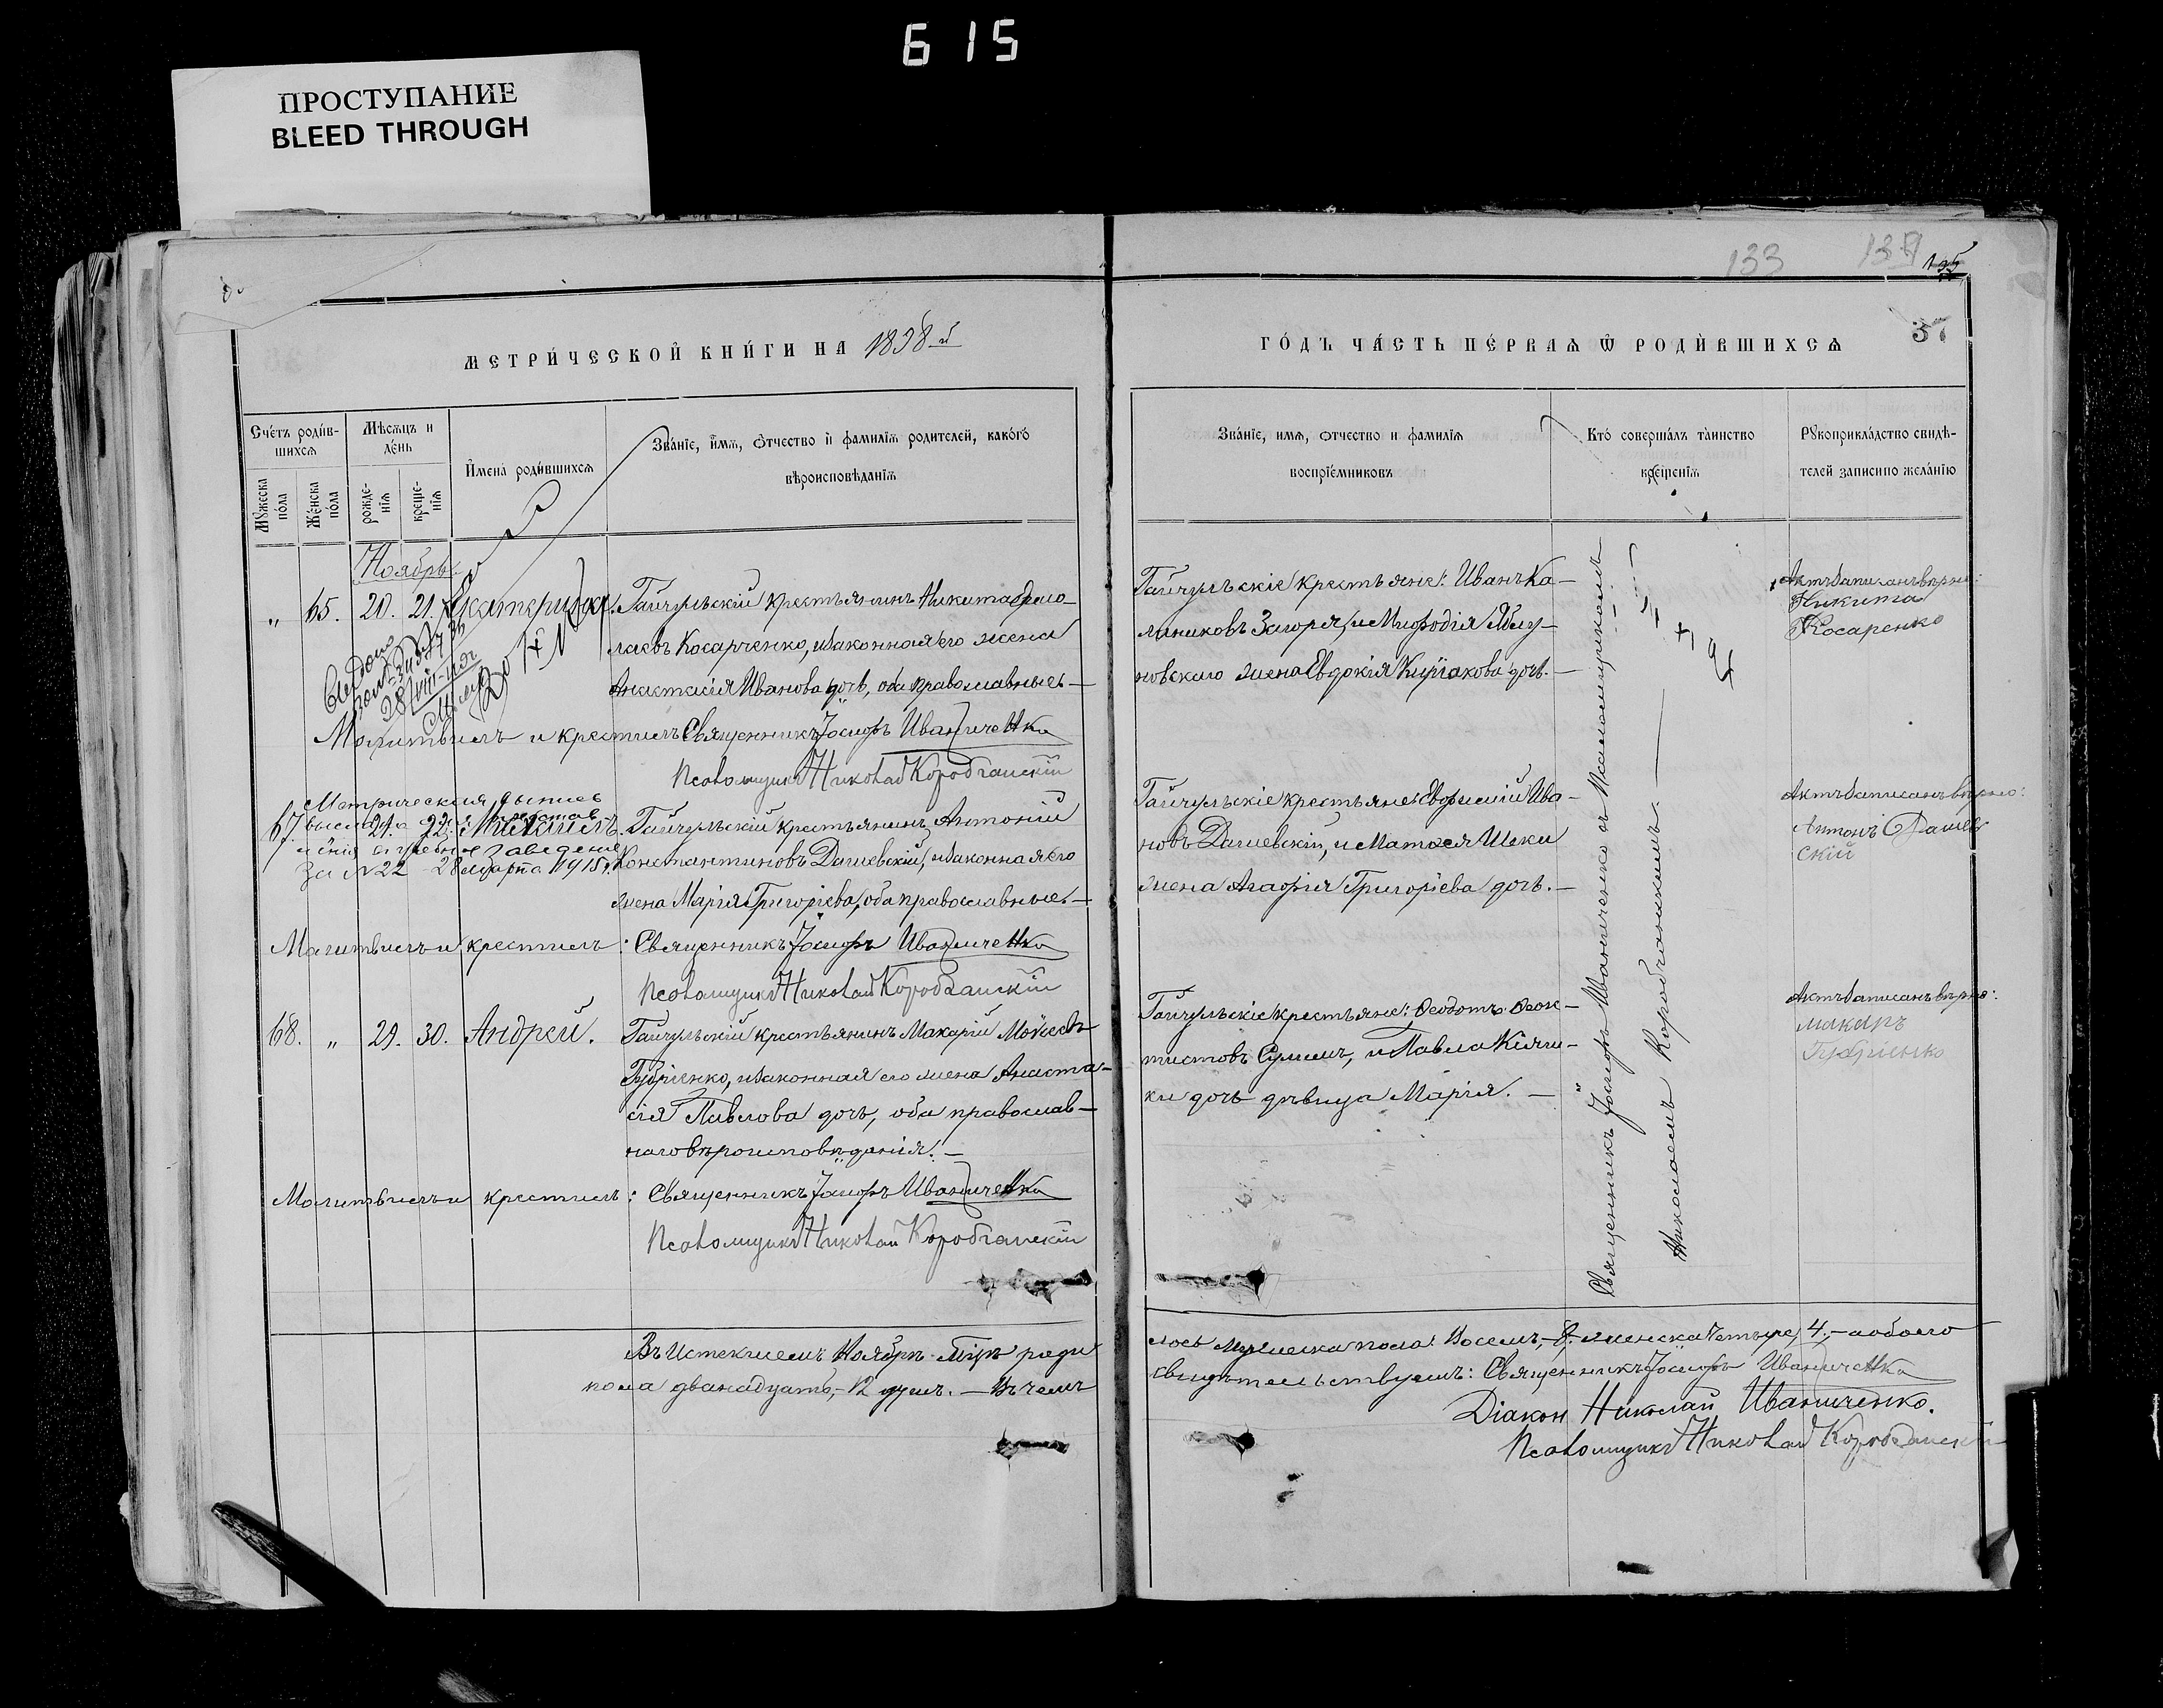 615
ПРОСТУПАНИЕ
BLEED THROUGH
133
135
37
МЕТРИ́ЧЕСКОЙ КНИ́ГИ НА 1898 й
ГО́ДЪ ЧА́СТЬ ПЕ́РВАѦ Ѿ РОДИ́ВШИХСѦ
Сче́тъ роди́в-
шихсѧ
Мꙋжеска
по́ла
Же́нска
по́ла
Мѣсѧцъ и
де́нь
рожде-
нїѧ
креще-
нїѧ
Имена̀ роди́вшихсѧ
Зва́нїе, имѧ, ѻтчество и фамилїѧ родителей, како́гѡ
вѣроисповѣданїѧ
Зва́нїе, имѧ, ѻтчество и фамилїѧ
воспрїе́мниковъ
Кто̀ соверша́лъ та́инство
креще́нїѧ
Рꙋкоприкла́дство свидѣ-
телей записи по жела́нїю
Ноябрь.
„ 65. 20. 21. Екатерина.
Гайчульскій крестьянинъ Никита
Косарченко, и законная его жена
Анастасія Иванова дочь, оба православные. —
Молитвилъ и крестилъ Священникъ Іосифъ Иваниченко
Псаломщикъ Николай Коробчанскій
Гайчульскіе крестьяне: Иванъ Ка-
линиковъ Загоря, и Мефодія Яблу-
новскаго жена Евдокія Киріакова дочь. —
Актъ записанъ вѣрно:
Никита
Косаренко
Метрическая выпись
за № 22 28 марта 1915 г.
67. 21. 22. Михаилъ.
Гайчульскій крестьянинъ Антоній
Константиновъ Дашевскій, и законная его
жена Марія Григорієва, оба православные. —
Молитвилъ и крестилъ: Священникъ Іосифъ Иваниченко
Псаломщикъ Николай Коробчанскій
Гайчульскіе крестьяне: Ива-
новъ Дашевскій, и Матѳея Шеки
жена Агафія Григоріева дочь. —
Актъ записанъ вѣрно:
Антонъ Дашев
скій
68. „ 29. 30. Андрей.
Гайчульскій крестьянинъ Макарій Моѵсеевъ
Губріенко, и законная его жена Анаста-
сія Павлова дочь, оба православ-
наго вѣроисповѣданія. —
Молитвилъ и крестилъ: Священникъ Іосифъ Иваниченко
Псаломщикъ Николай Коробчанскій
Гайчульскіе крестьяне: Ѳеодотъ Ѳеок-
тистовъ и Павла Кіяш-
ки дочь дѣвица Марія. —
Актъ записанъ вѣрно:
Макаръ
Губріенко
Священникъ Іосифъ Иваниченко съ псаломщикомъ
Николаемъ Коробчанскимъ.
Въ истекшемъ Ноябрѣ мѣсяцѣ роди
лось мужеска пола: восемь, — 8. женска четыре, 4. — а обоего
пола дванадцать, — 12 душъ. — Въ чемъ
свидѣтельствуемъ: Священникъ Іосифъ Иваниченко
Діакон Николай Иваниченко.
Псаломщикъ Николай Коробчанскій